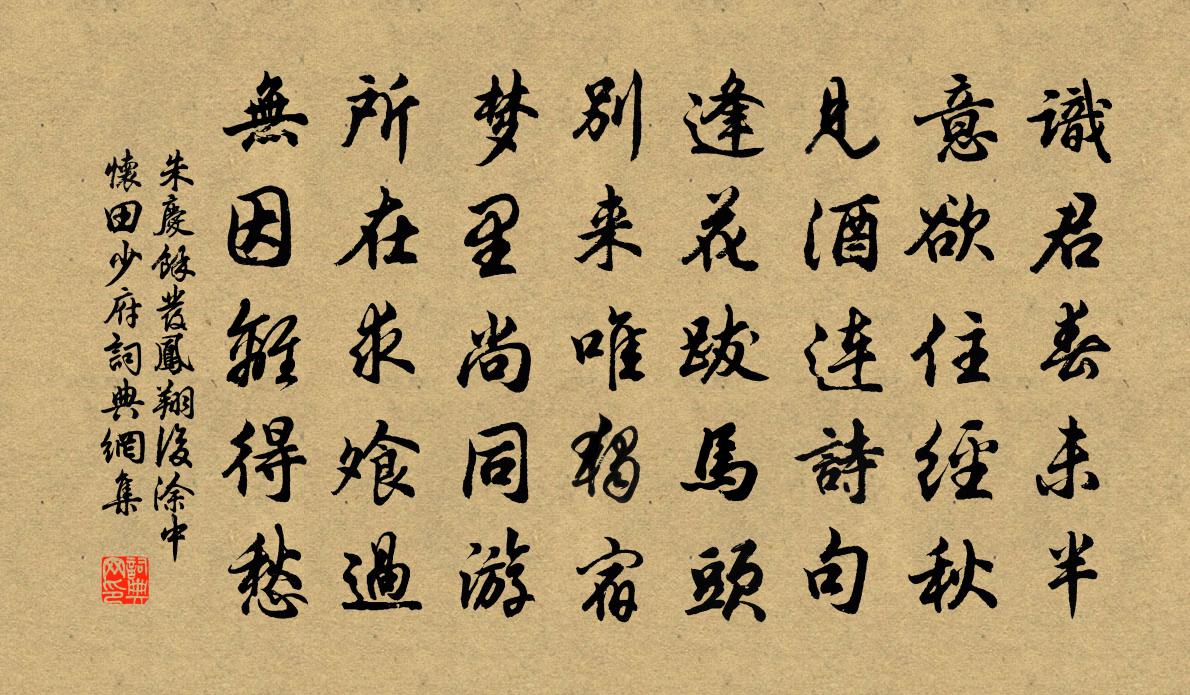 識君春未半
意欲住經秋
見酒连詩句
逢花跋馬頭
别来唯獨宿
梦里尚同游
所在求飡過
無因離得愁
朱慶餘發鳳翔後涂中
懷田少府詞典網集
詞典网印